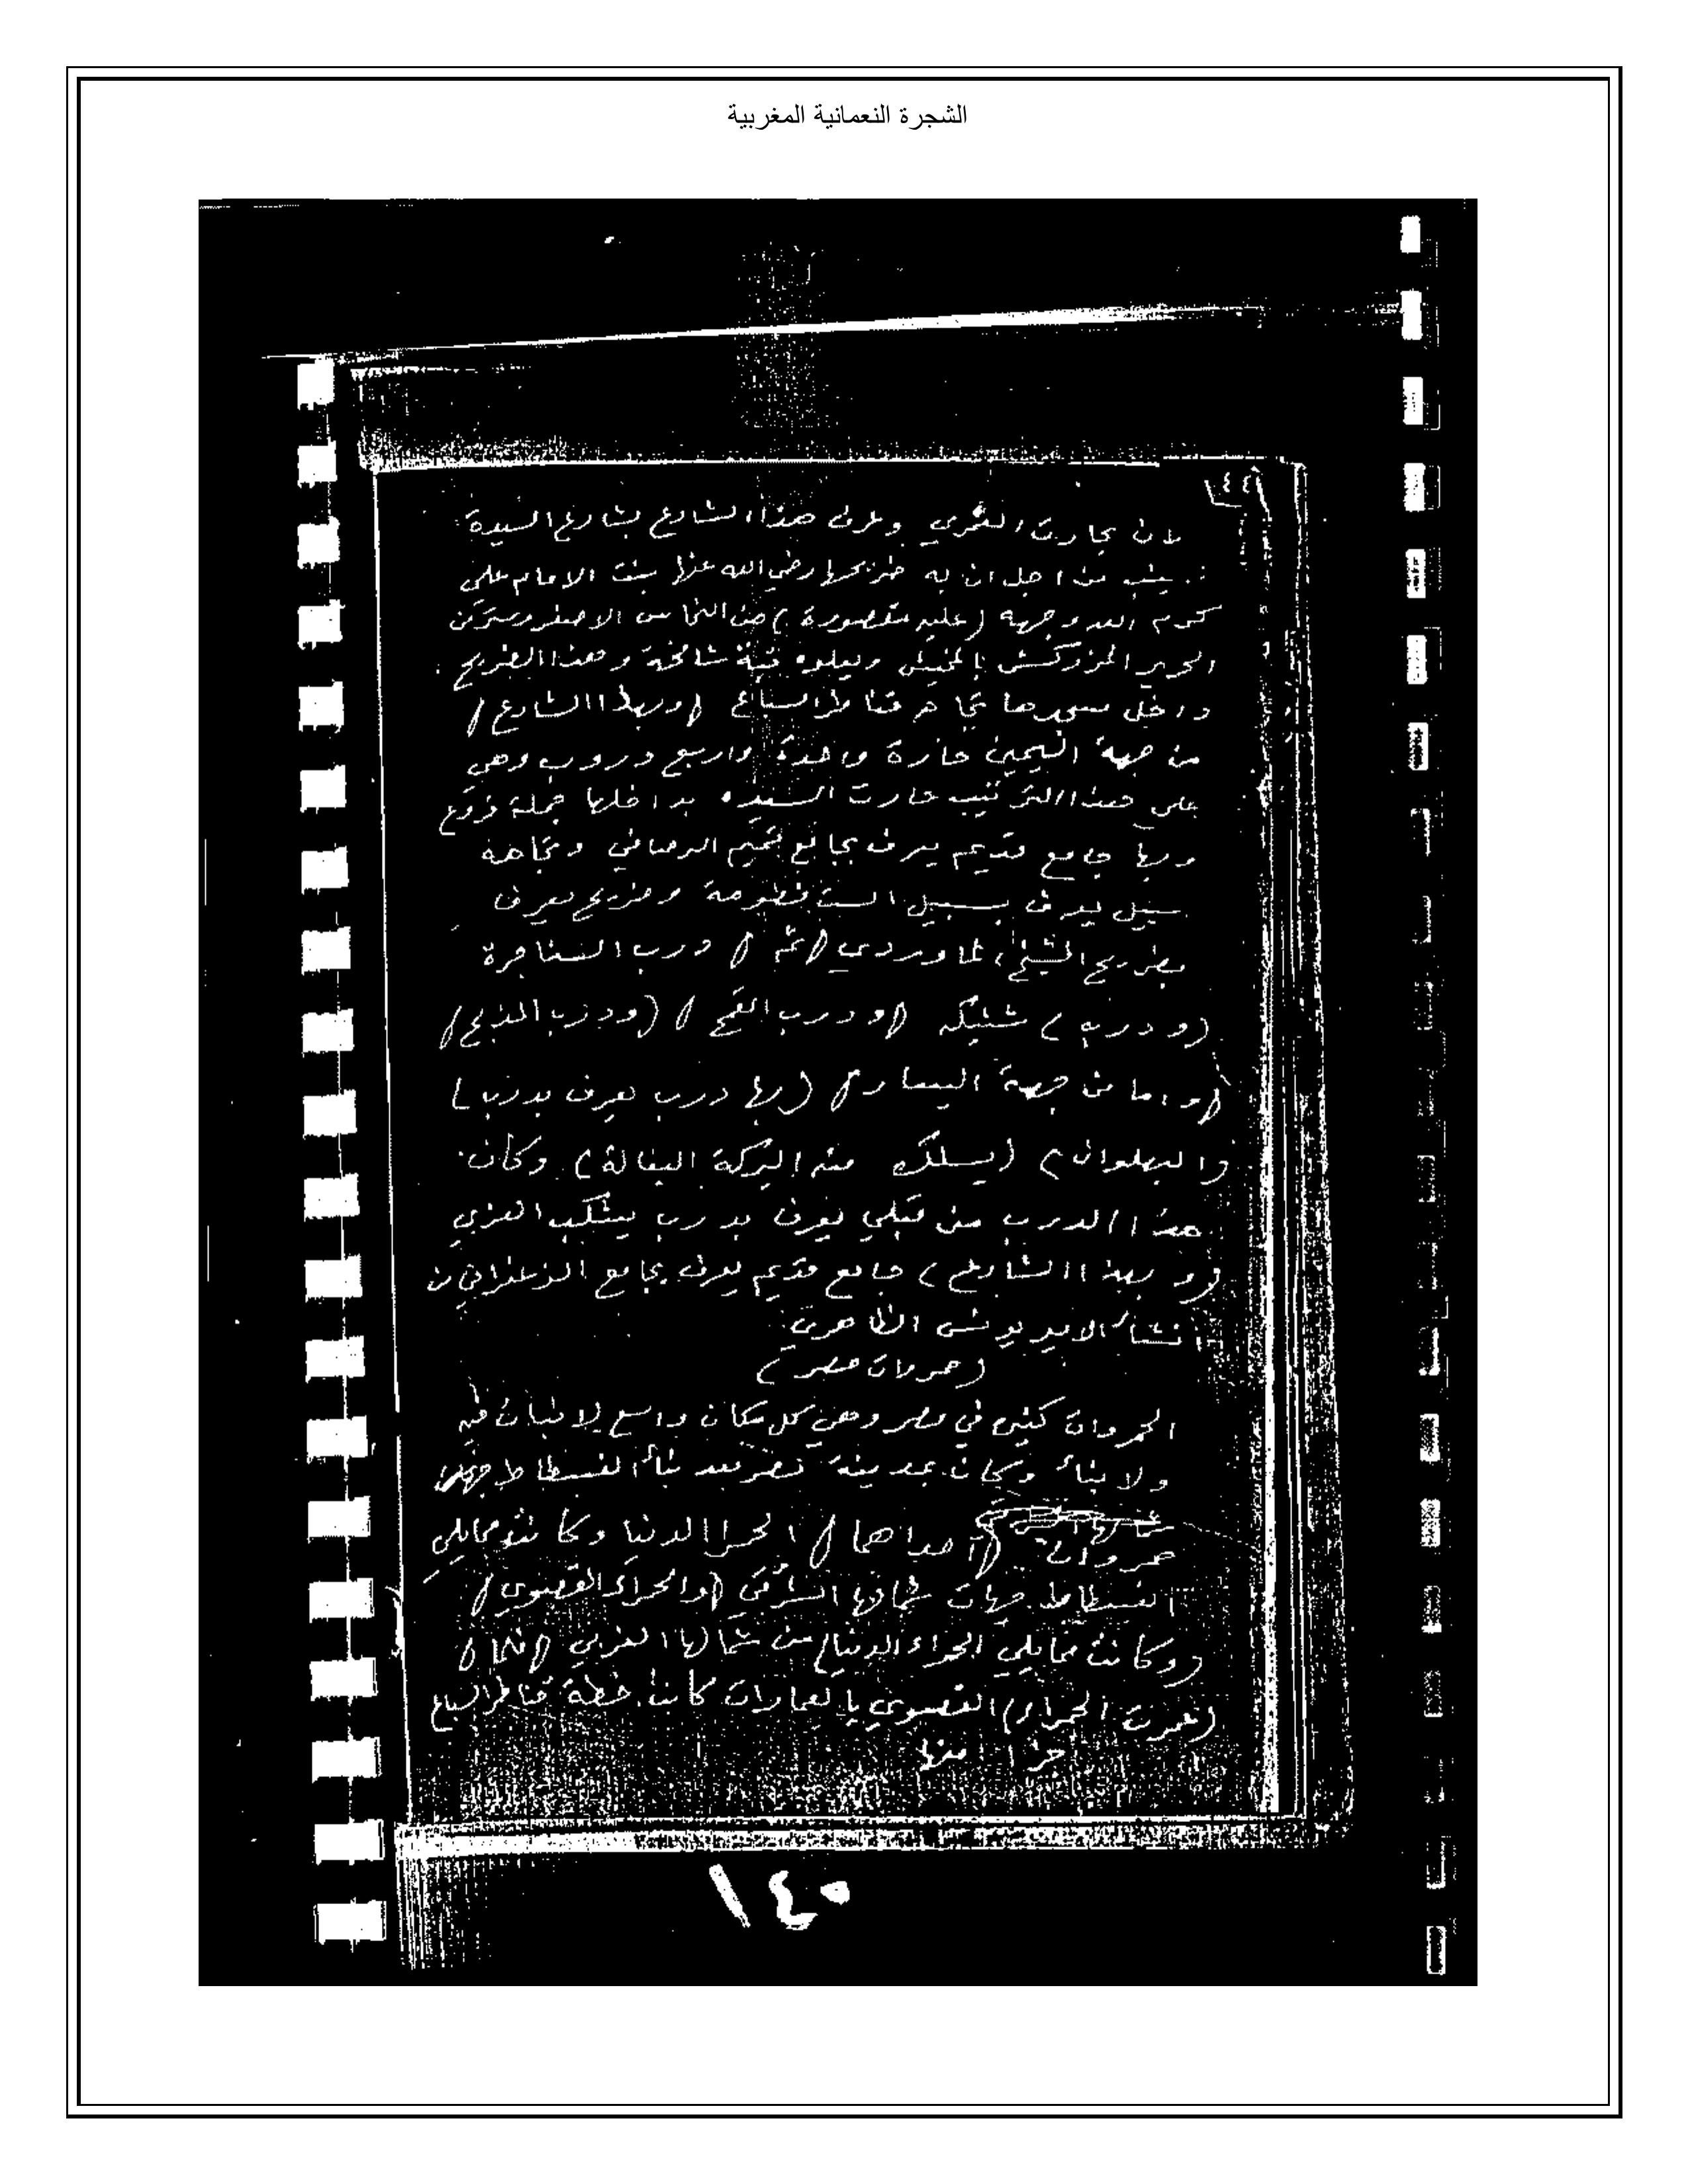 الشجرة النعمانية المغربية
لان بحارت وعرف هذا الشارع بشارع السيدة
زينب من اجل ان به ضريحها رضي الله عنها بنت الامام علي
كرم الله وجهه (عليه مقصورة) من النحاس الاصفر وستر من
الحرير المزركش بالمخيش ويعلوه قبة شامخة وهذا الضريح
داخل مسجدها تجاه قناطر السباع (وبهذا الشارع)
من جهة اليمين حارة واحدة واربع دروب وهي
على هذا الترتيب حارت السيده بداخلها جملة فروع
وبها جامع قديم يعرف بجامع تميم الرصافي وتجاهه
سبيل يعرف بسبيل الست فطومة وضريح يعرف
بضريح الشيخ الماوردي (ثم) درب
(ودرب) (ودرب القمح) (ودرب المذبح)
(واما من جهة اليسار) (بها درب يعرف بدرب)
والبهلوان) (يسلك منه البركة البغالة) وكان
هذا الدرب من قبلي يعرف بدرب العزبي
(وبهذا الشارع) جامع قديم يعرف بجامع الزعفراني من
انشاء الامير يونس الظاهري
(حمروات مصر)
الحمروات كثير في مصر وهي كل مكان واسع لا نبات فيه
ولا بناء وكان بمدينة مصر بعد بناء الفسطاط جهة
حمروات (احداهما) الحمرا الدنيا وكانت ممايلي
الفسطاط جهات شمالها الشرقي (والحمراء القصوي)
(وكانت ممايلي الحمراء الدنيا من شمالها الغربي (فلما)
(عمرت الحمراء) القصوي بالعمارات كانت خطة قناطر السباع
جزا منها
١٤٠